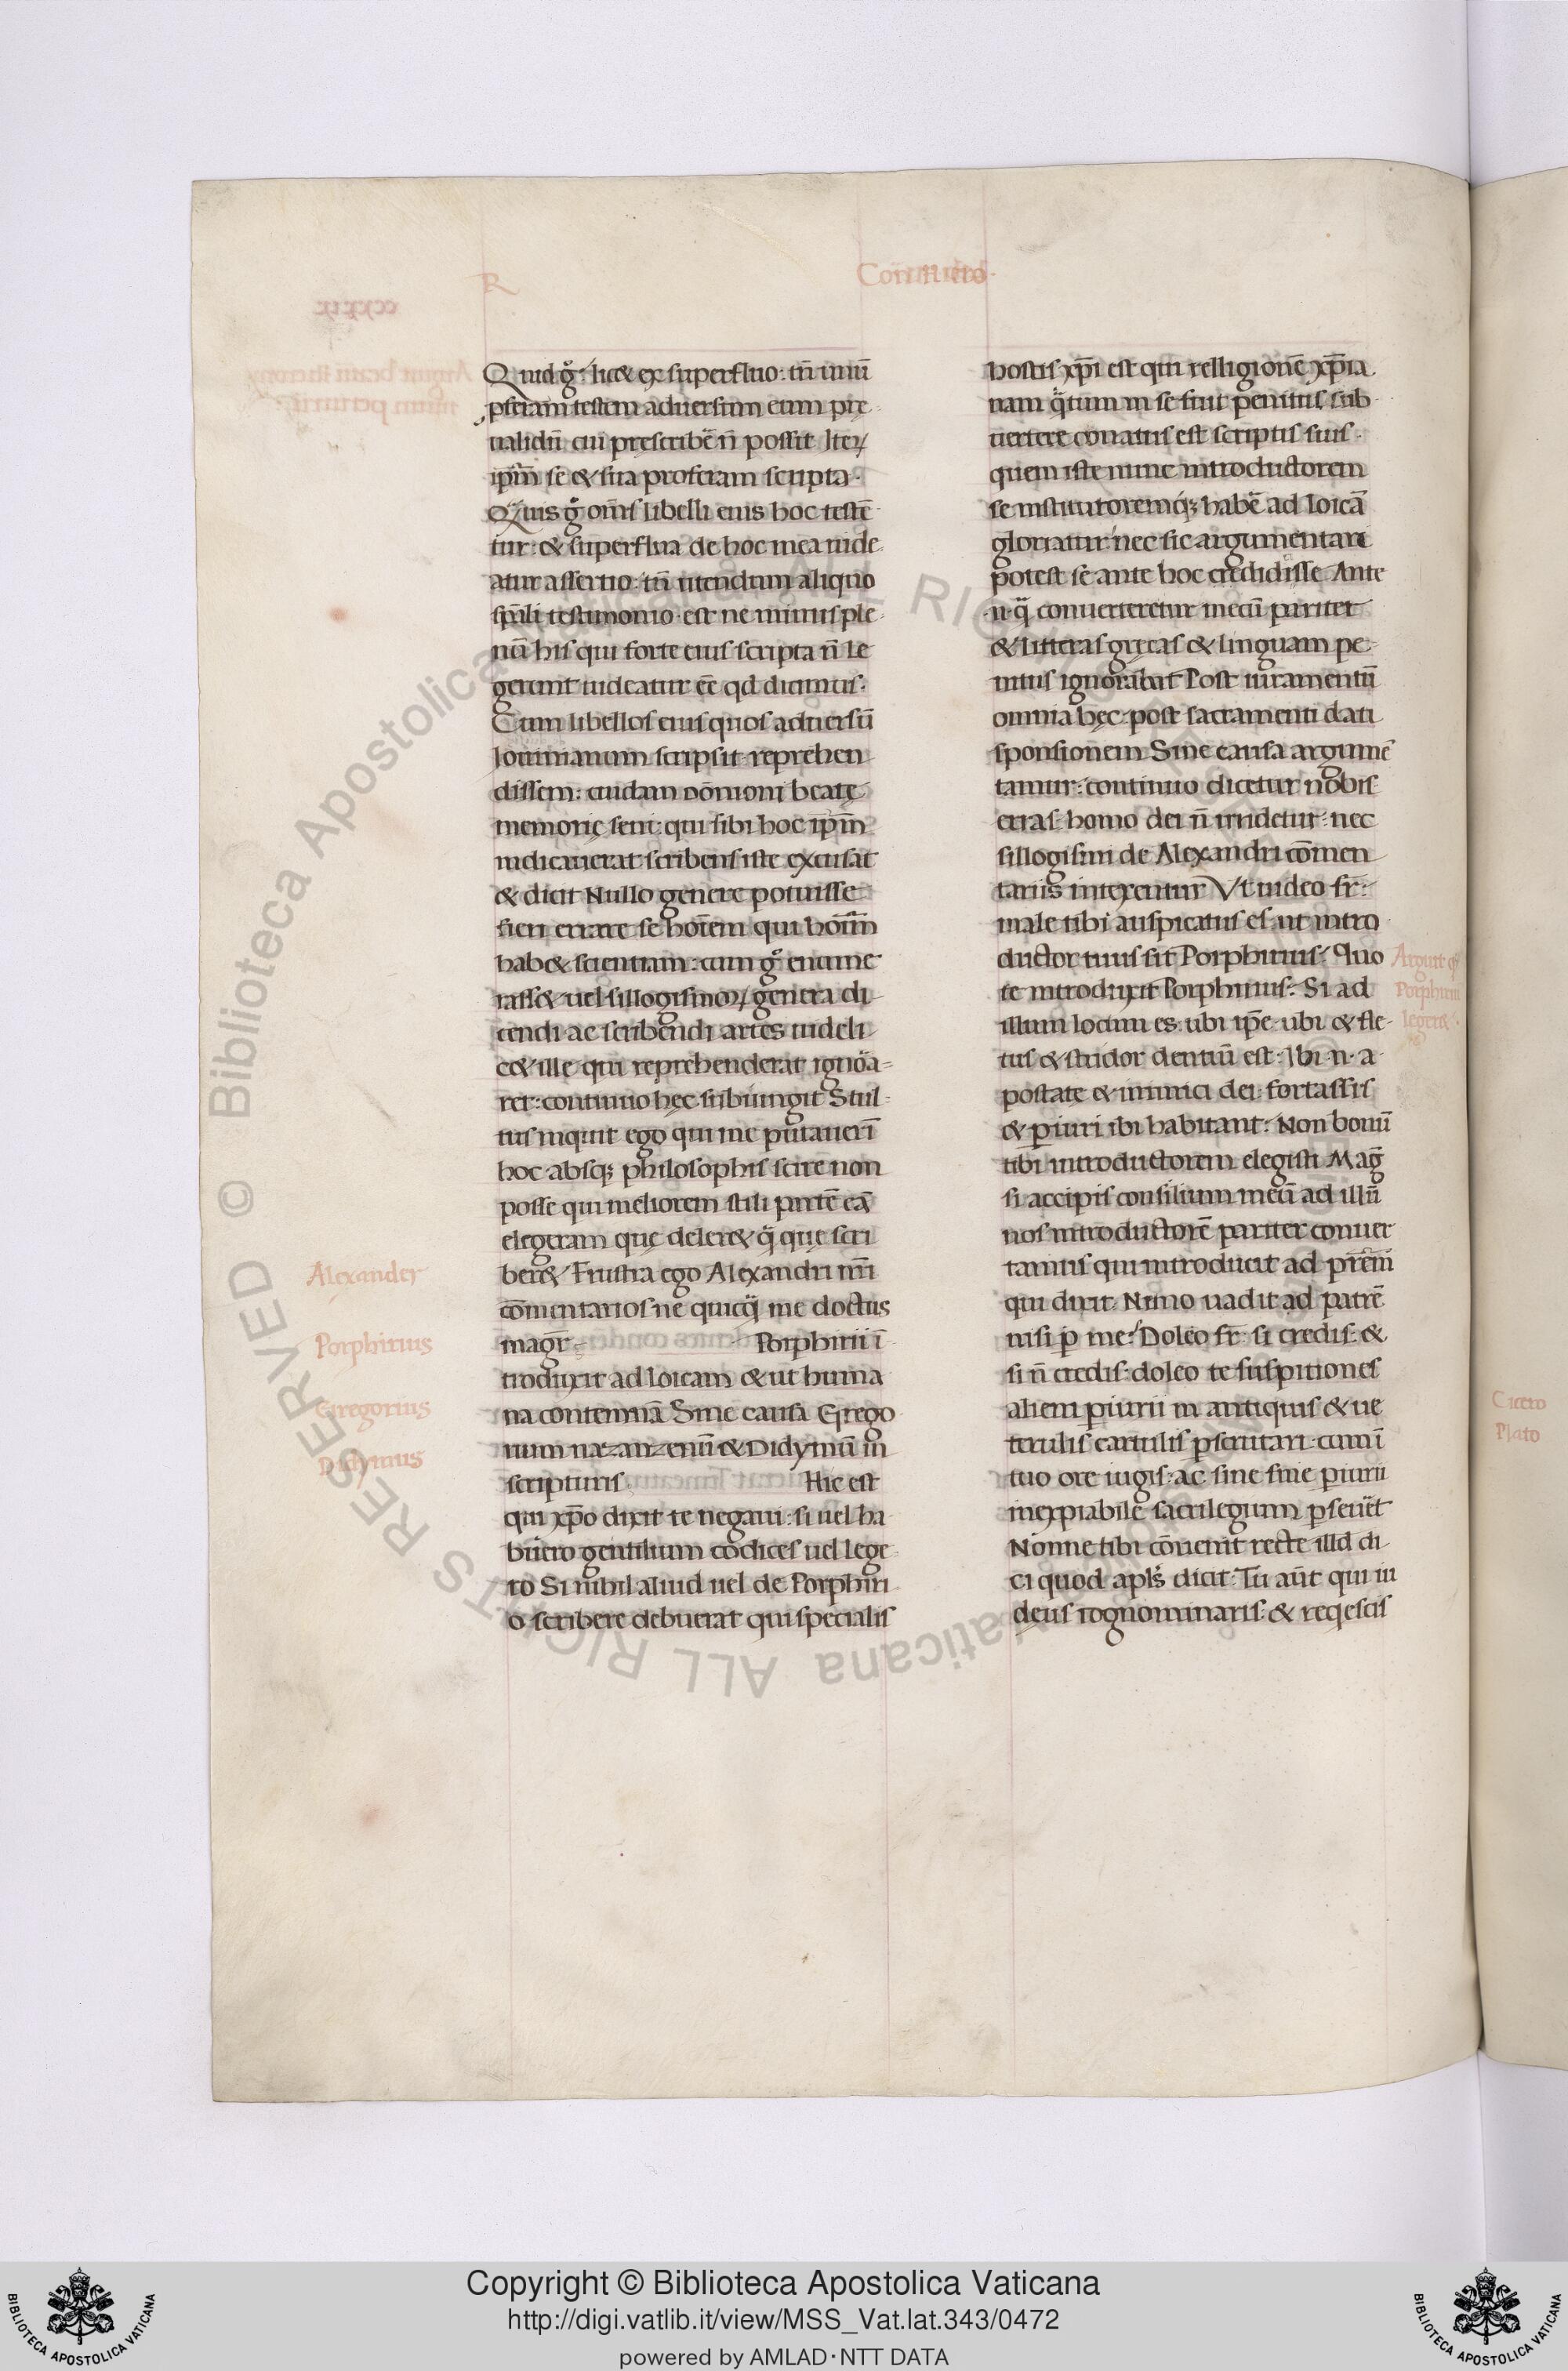 R
Quid g̊: licet ex superfluo: tn̄ unū
pferam testem aduersum eum prę
ualidū cui prescribẽ n̄ possit Iteꝝ
ip̄m se & sua proferam scripta.
Quis g̊ om̄s libelli eius hoc testẽ
tur: & superflua de hoc mea uide
atur assertio: tn̄ utendum aliquo
sp̄ali testimonio est ne minus ple
nū his qui forte eius scripta n̄ le
gerunt uideatur eẽ qd dicimus.
Cum libellos eius quos aduersū
Iouinianum scripsit reprehen
dissem: cuidam Dõmoni beatę
memorię seni: qui sibi hoc ip̄m
indicauerat scribens iste excusat
& dicit Nullo genere potuisse
fieri errare se hoĩem qui hoĩm̄
hab& scientiam: cum g̊ enume
rass& uel sillogismoꝝ genera di
cendi ac scribendi artes uideli
c& ille qui reprehenderat ignöa=
ret: continuo hęc subiungit Stul=
tus inquit ego qui me putauerĩ
hoc absqꝫ philosophis scire non
posse qui meliorem stili partẽ eã
elegeram quę deler& q̈ quę scri
ber& Frustra ego Alexandri m̄i
cõmentarios ne quicq̈ me doctus
magr̄ Porphirii ĩ
troduxit ad loicam & ut huma
na contemnã Sine causa Grego
rium nazanzenū & Didymū in
scripturis Hic est
qui xp̄o dixit te negaui: si uel ha
buero gentilium codices uel lege
ro Si nihil aliud uel de Porphiri
o scribere debuerat qui specialis
Alexander
Porphirius
Gregorius
Didymus
hostis xp̄i est qui relligionẽ xp̄ia
nam q̈tum in se fuit penitus sub
uertere conatus est scriptis suis.
quem iste nunc introductorem
se institutoremqꝫ habẽ ad loicã
gloriatur nec sic argumentari
potest se ante hoc credidisse Ante
.n. q̈ conuerteretur mecū pariter
& litteras gręcas & linguam pe
nitus ignorabat Post iuramentū
omnia hęc: post sacramenti dati
sponsionem Sine causa argumẽ
tamur: continuo dicetur nobis
erras homo dei n̄ irridetur: nec
sillogismi de Alexandri cõmen
tariis intexentur Vt uideo fr̄:
male tibi auspicatus es ut intro
ductor tuus sit Porphirius: Quo
te introduxit Porphirius: Si ad
illum locum es ubi ip̄e: ubi & fle
tus & stridor dentiū est. Ibi .n. a
postatę & inimici dei: fortassis
& ꝑiuri ibi habitant: Non bonū
tibi introductorem elegisti Mag̃
si accipis consilium meū ad illū
nos introductorẽ pariter conuer
tamus qui introducit ad pr̄em
qui dixit. Nemo uadit ad patrẽ
nisi ꝑ me: Doleo fr̄: si credis: &
si n̄ credis: doleo te suspitiones
alieni ꝑiurii in antiquis & ue
terulis cartulis ꝑscrutari: cum ĩ
tuo ore iugis: ac sine fine ꝑiurii
inexpiabile sacrilegium ꝑseuẽt
Nonne tibi cõuenit recte illd di
ci quod apl̄s dicit: Tu aūt qui iu
deus cognominaris: & reqescis
Arguit
Porphirium
leger&
Cicero
Plato
Copyright © Biblioteca Apostolica Vaticana
http://digi.vatlib.it/view/MSS_Vat.lat.343/0472
powered by AMLAD·NTT DATA